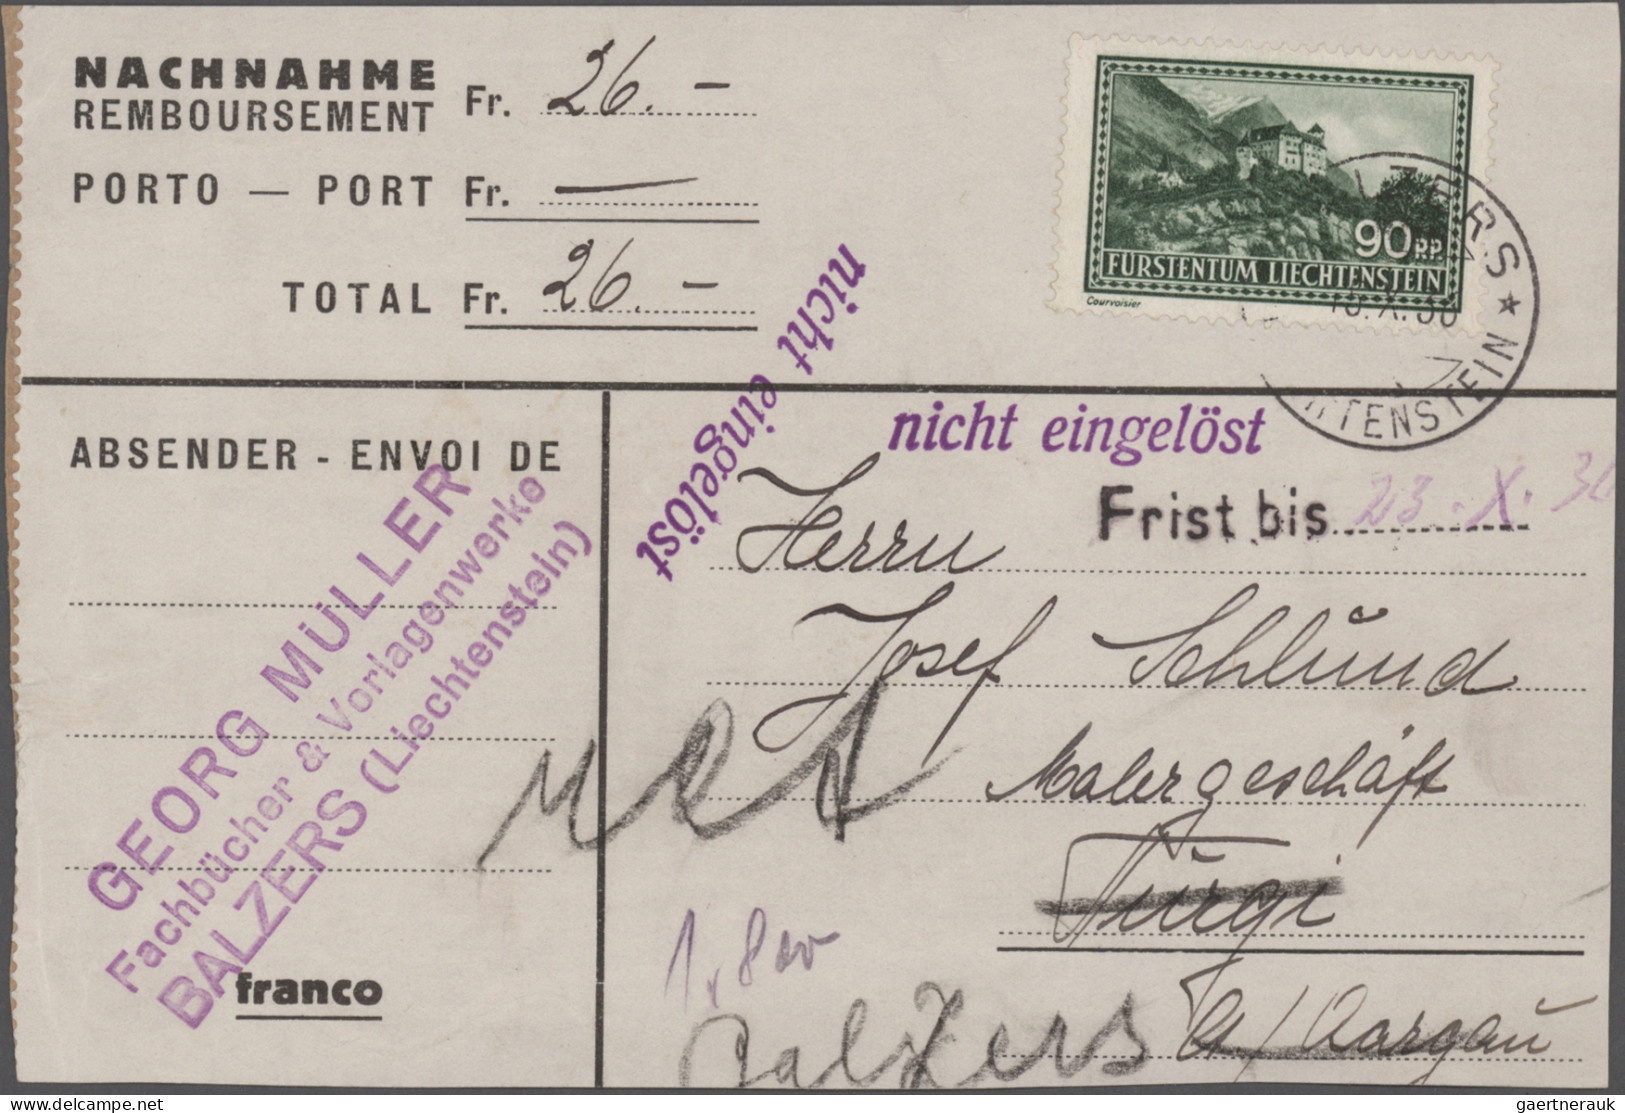 NACHNAHME
REMBOURSEMENT Fr. 26.–
PORTO — PORT Fr. —
TOTAL Fr. 26.–
90 RP.
FÜRSTENTUM LIECHTENSTEIN
Courvoisier
ZERS ★
TENSTEIN
nicht eingelöst
nicht eingelöst
Frist bis 23.X.36
ABSENDER - ENVOI DE
GEORG MÜLLER
Fachbücher & Vorlagenwerke
BALZERS (Liechtenstein)
franco
Herrn
Josef Schlund
Malergeschäft
Turgi
Aargau
Balzers
delcampe.net
gaertnerauk